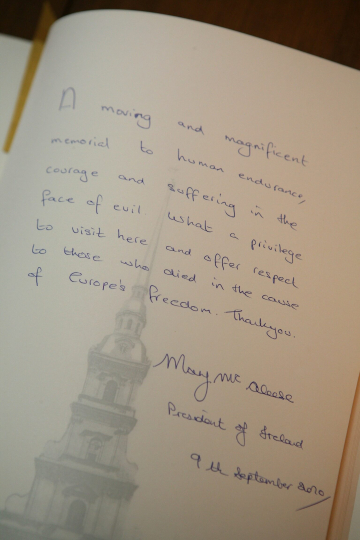 A moving and magnificent
memorial to human endurance,
courage and suffering in the
face of evil What a privilege
to visit here and offer respect
to those who died in the cause
of Europe's freedom. Thankyou.
Mary McAleese
President of Ireland
9th September 2010